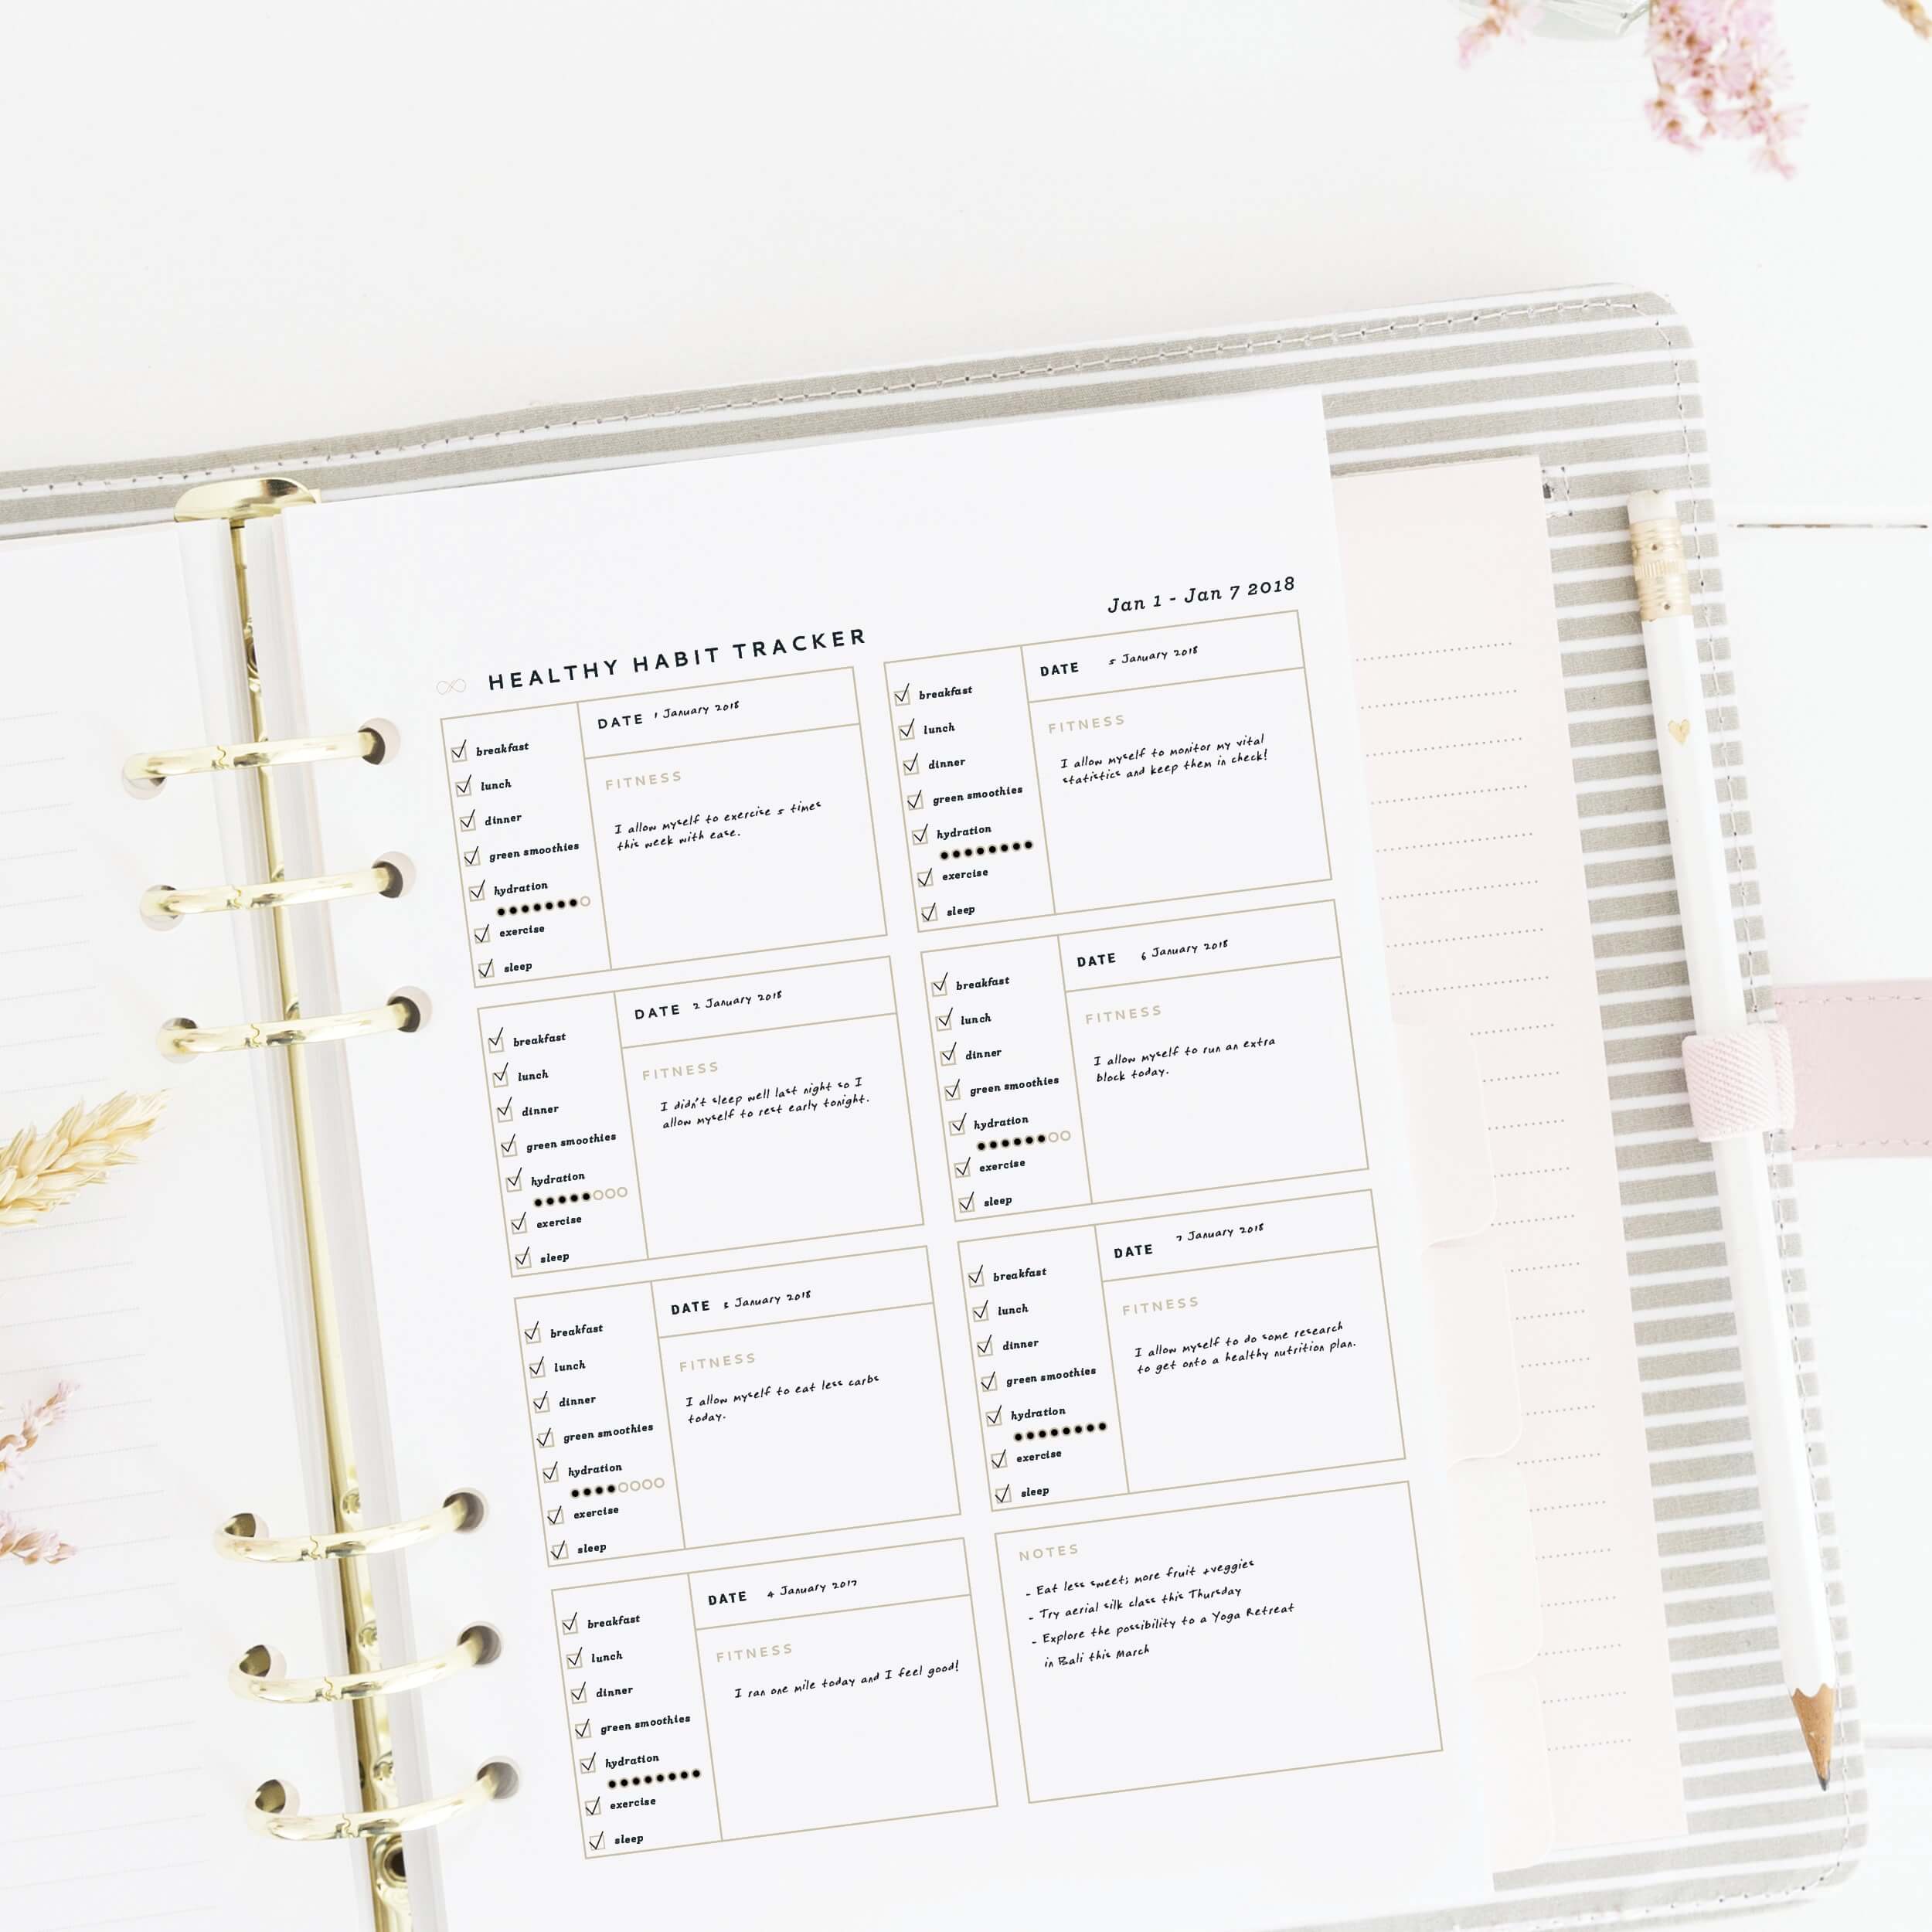 HEALTHY HABIT TRACKER
Jan 1 - Jan 7 2018
breakfast
lunch
dinner
green smoothies
hydration
exercise
sleep
DATE 1 January 2018
FITNESS
I allow myself to exercise 5 times
this week with ease.
breakfast
lunch
dinner
green smoothies
hydration
exercise
sleep
DATE 2 January 2018
FITNESS
I didn't sleep well last night so I
allow myself to rest early tonight.
breakfast
lunch
dinner
green smoothies
hydration
exercise
sleep
DATE 3 January 2018
FITNESS
I allow myself to eat less carbs
today.
breakfast
lunch
dinner
green smoothies
hydration
exercise
sleep
DATE 4 January 2017
FITNESS
I ran one mile today and I feel good!
breakfast
lunch
dinner
green smoothies
hydration
exercise
sleep
DATE 5 January 2018
FITNESS
I allow myself to monitor my vital
statistics and keep them in check!
breakfast
lunch
dinner
green smoothies
hydration
exercise
sleep
DATE 6 January 2018
FITNESS
I allow myself to run an extra
block today.
breakfast
lunch
dinner
green smoothies
hydration
exercise
sleep
DATE 7 January 2018
FITNESS
I allow myself to do some research
to get onto a healthy nutrition plan.
NOTES
- Eat less sweet; more fruit +veggies
- Try aerial silk class this Thursday
- Explore the possibility to a Yoga Retreat
in Bali this March